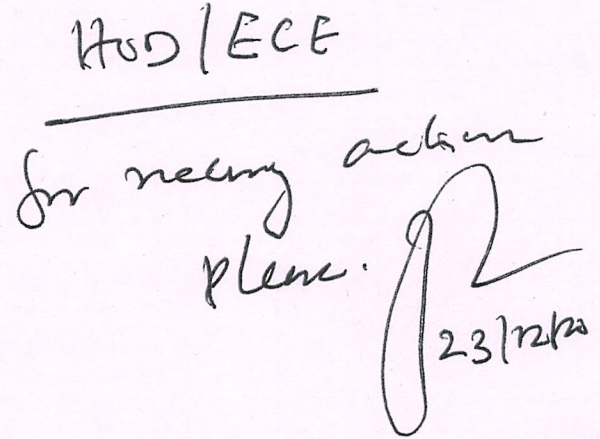 HOD/ECE
for necessary action
please.
23/12/20